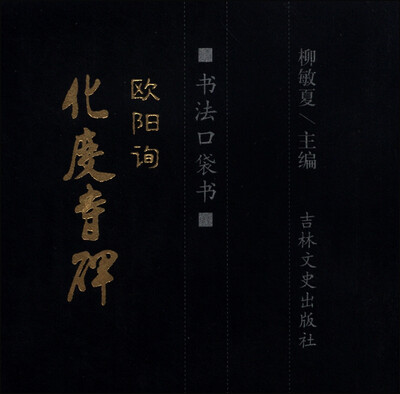 柳敏夏/主编
吉林文史出版社
书法口袋书
欧阳询
化度寺碑